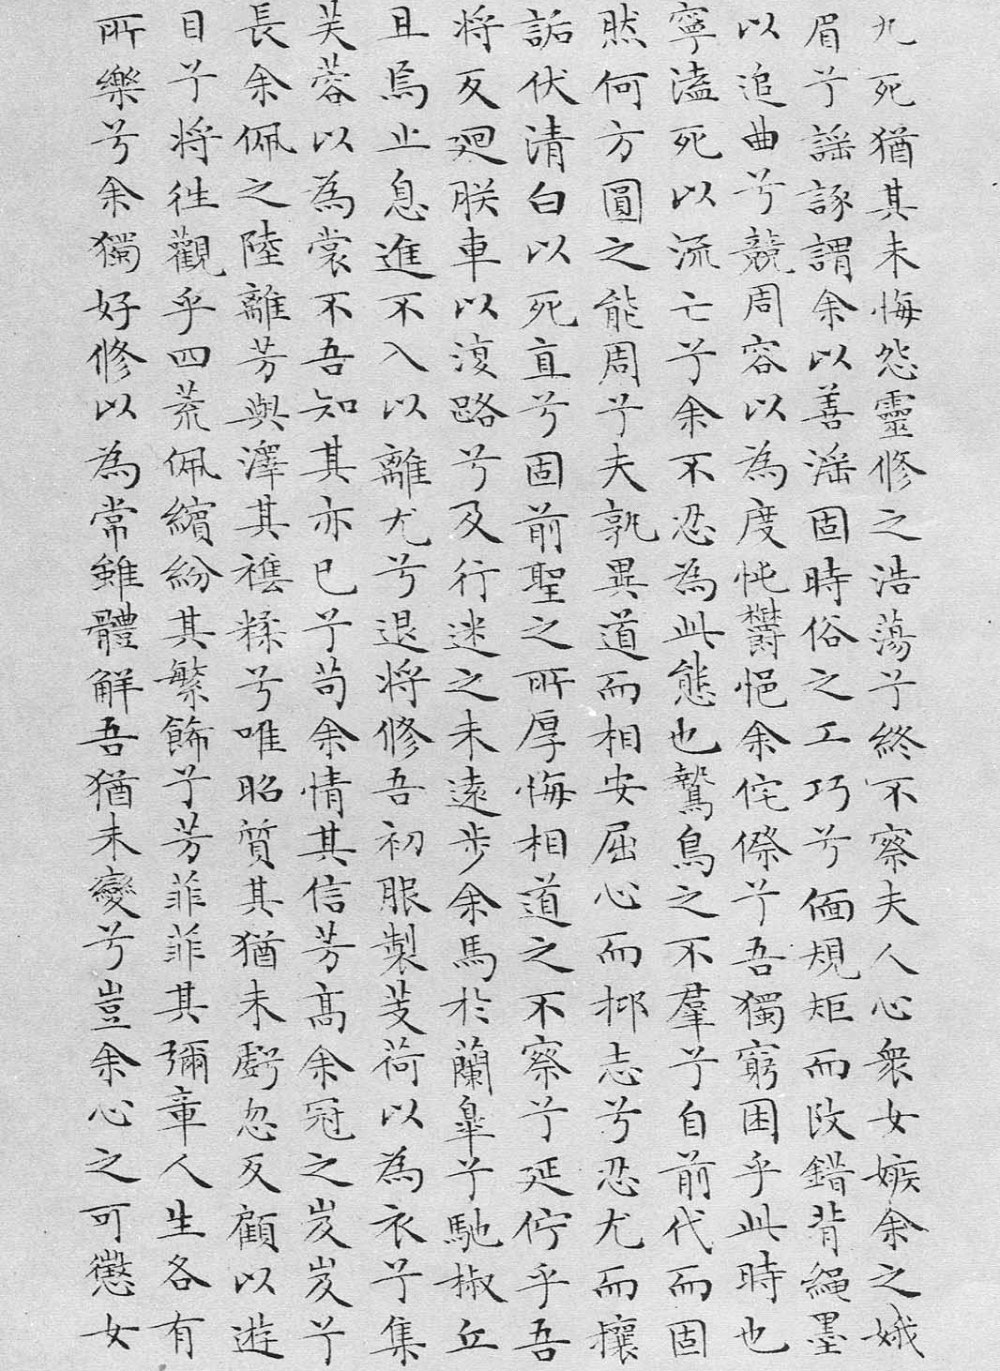 九死猶其未悔怨靈修之浩蕩兮終不察夫人心衆女嫉余之娥
眉兮謡諑謂余以善滛固時俗之工巧兮偭規矩而改錯背繩墨
以追曲兮競周容以為度忳欝悒余侘傺兮吾獨窮困乎此時也
寧溘死以流亡兮余不忍為此態也鷙鳥之不羣兮自前代而固
然何方圓之能周兮夫孰異道而相安屈心而抑志兮忍尤而攘
詬伏清白以死直兮固前聖之所厚悔相道之不察兮延佇乎吾
将反迴朕車以復路兮及行迷之未遠步余馬於蘭皐兮馳椒丘
且焉止息進不入以離尤兮退将修吾初服製芰荷以為衣兮集
芙蓉以為裳不吾知其亦已兮苟余情其信芳高余冠之岌岌兮
長余佩之陸離芳與澤其襍糅兮唯昭質其猶未虧忽反顧以遊
目兮将往觀乎四荒佩繽紛其繁飾兮芳菲菲其彌章人生各有
所樂兮余獨好修以為常雖體解吾猶未變兮豈余心之可懲女